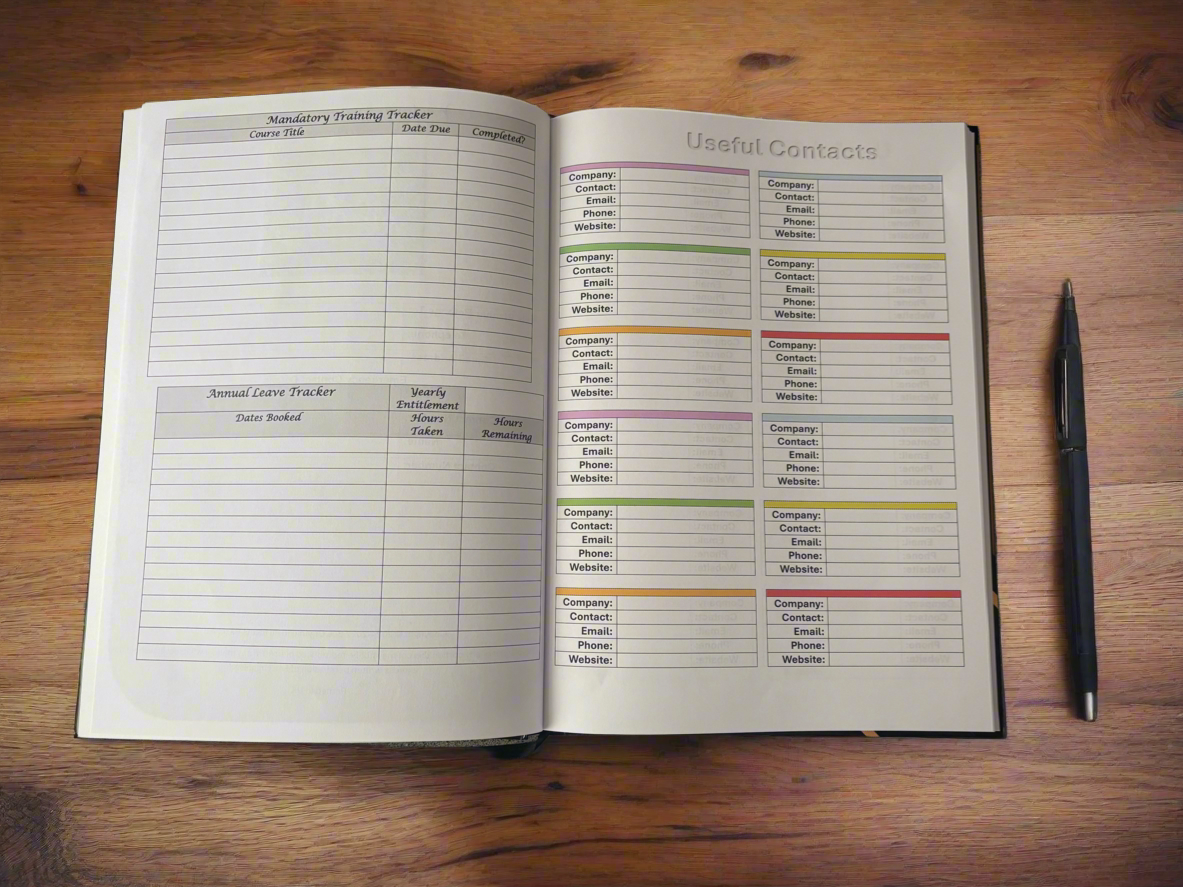 Mandatory Training Tracker
Course Title Date Due Completed?
Annual Leave Tracker Yearly Entitlement
Dates Booked Hours Taken Hours Remaining
Useful Contacts
Company:
Contact:
Email:
Phone:
Website:
Company:
Contact:
Email:
Phone:
Website:
Company:
Contact:
Email:
Phone:
Website:
Company:
Contact:
Email:
Phone:
Website:
Company:
Contact:
Email:
Phone:
Website:
Company:
Contact:
Email:
Phone:
Website:
Company:
Contact:
Email:
Phone:
Website:
Company:
Contact:
Email:
Phone:
Website:
Company:
Contact:
Email:
Phone:
Website:
Company:
Contact:
Email:
Phone:
Website:
Company:
Contact:
Email:
Phone:
Website:
Company:
Contact:
Email:
Phone:
Website: